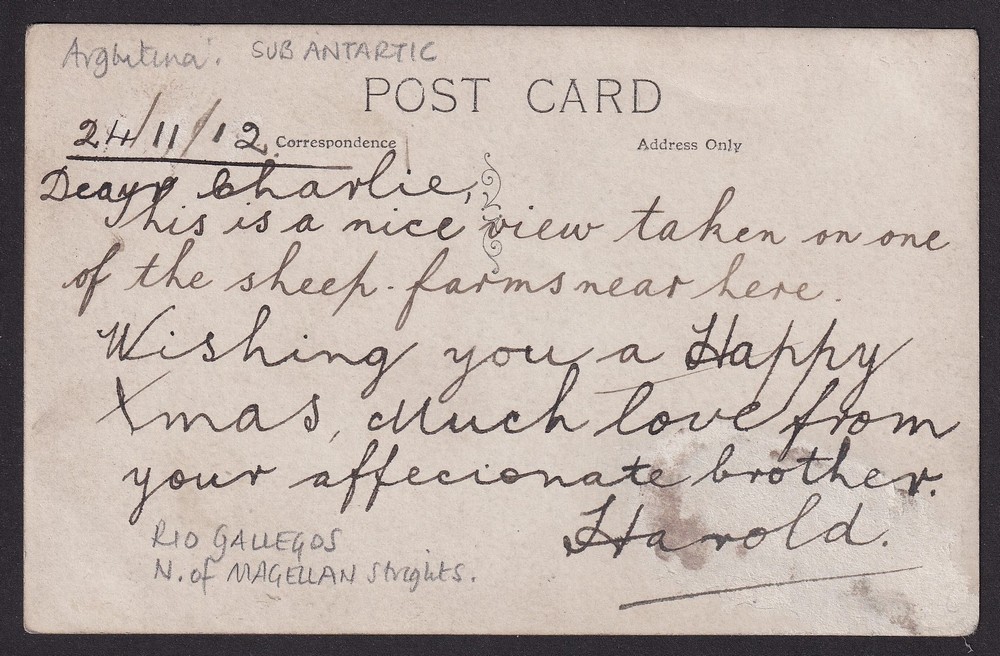 Argbitina. SUB ANTARTIC
POST CARD
24/11/12. Correspondence Address Only
Dear Charlie,
This is a nice view taken on one
of the sheep-farms near here.
Wishing you a Happy
Xmas, Much love from
your affecionate brother.
Harold.
RIO GALLEGOS
N. of MAGELLAN Strights.